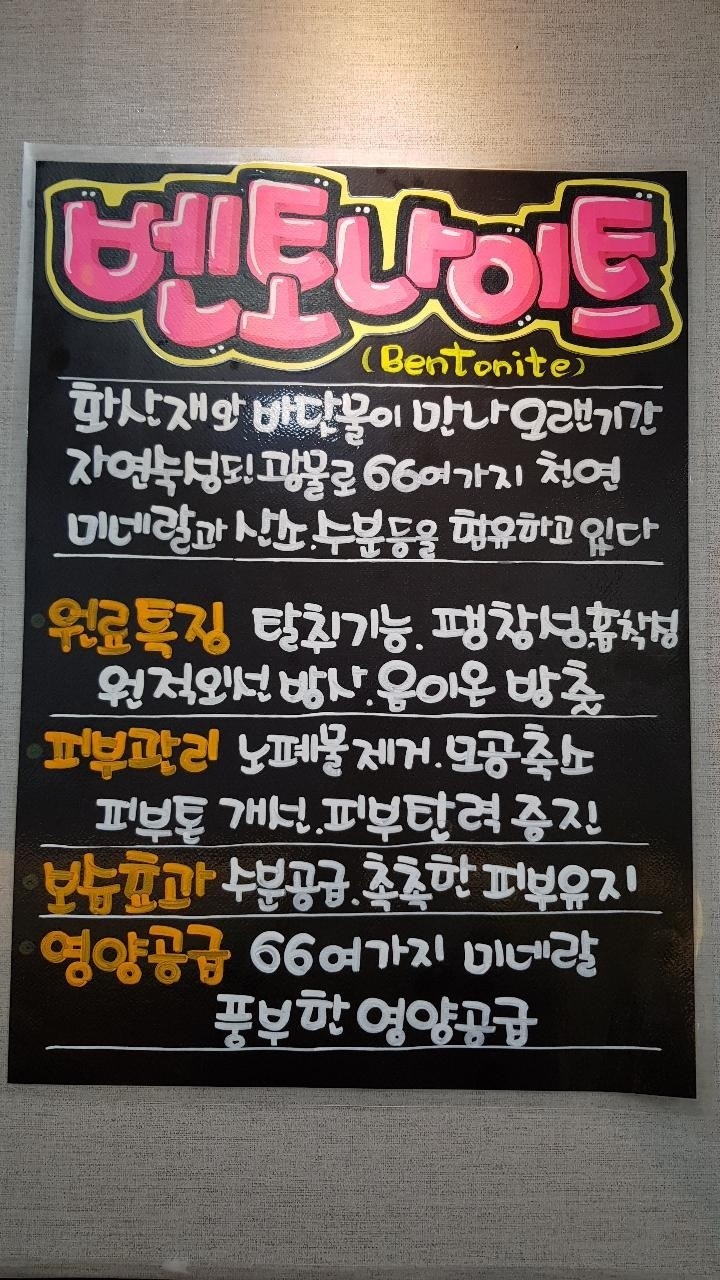 벤토나이트
(Bentonite)
화산재와 바닷물이 만나 오랜기간
자연숙성된 광물로 66여가지 천연
미네랄과 산소.수분등을 함유하고 있다
원료특징 탈취기능. 팽창성.흡착성
원적외선 방사.음이온 방출
피부관리 노폐물제거.모공축소
피부톤 개선.피부탄력 증진
보습효과 수분공급.촉촉한 피부유지
영양공급 66여가지 미네랄
풍부한 영양공급